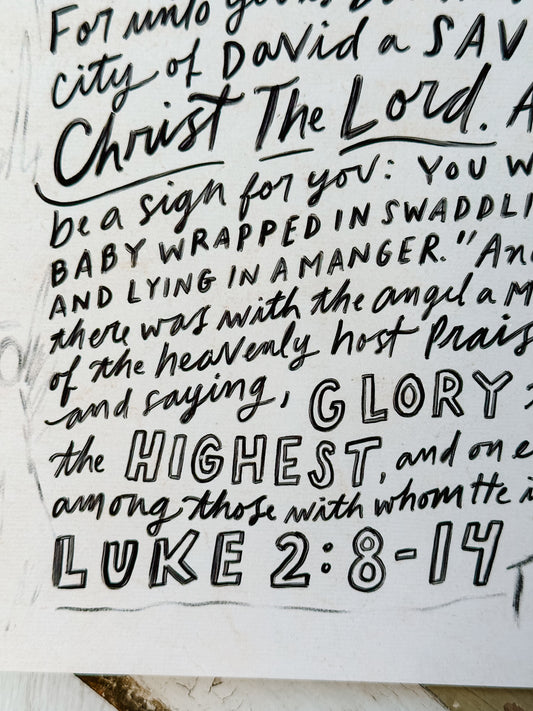 For unto you is
city of David a SAV
Christ The Lord. A
be a sign for you: YOU W
BABY WRAPPED IN SWADDLI
AND LYING IN A MANGER." An
there was with the angel a M
of the heavenly host Prais
and saying, GLORY
the HIGHEST, and on e
among those with whom He i
LUKE 2:8-14
T